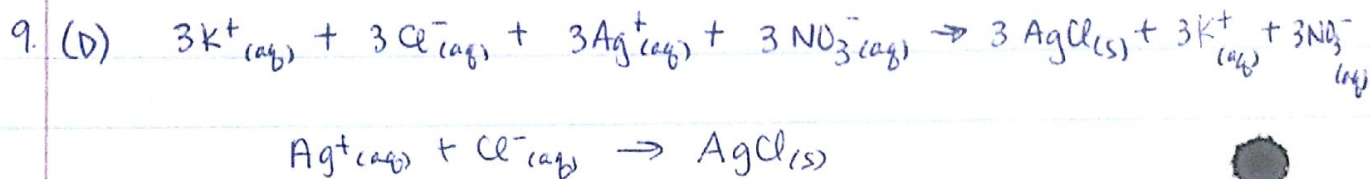 9. (D) 3K⁺(aq) + 3Cl⁻(aq) + 3Ag⁺(aq) + 3NO₃⁻(aq) → 3AgCl(s) + 3K⁺(aq) + 3NO₃⁻(aq)
Ag⁺(aq) + Cl⁻(aq) → AgCl(s)